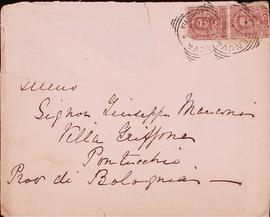 Signor Giuseppe Marconi
Villa Griffone
Pontecchio
Prov di Bologna